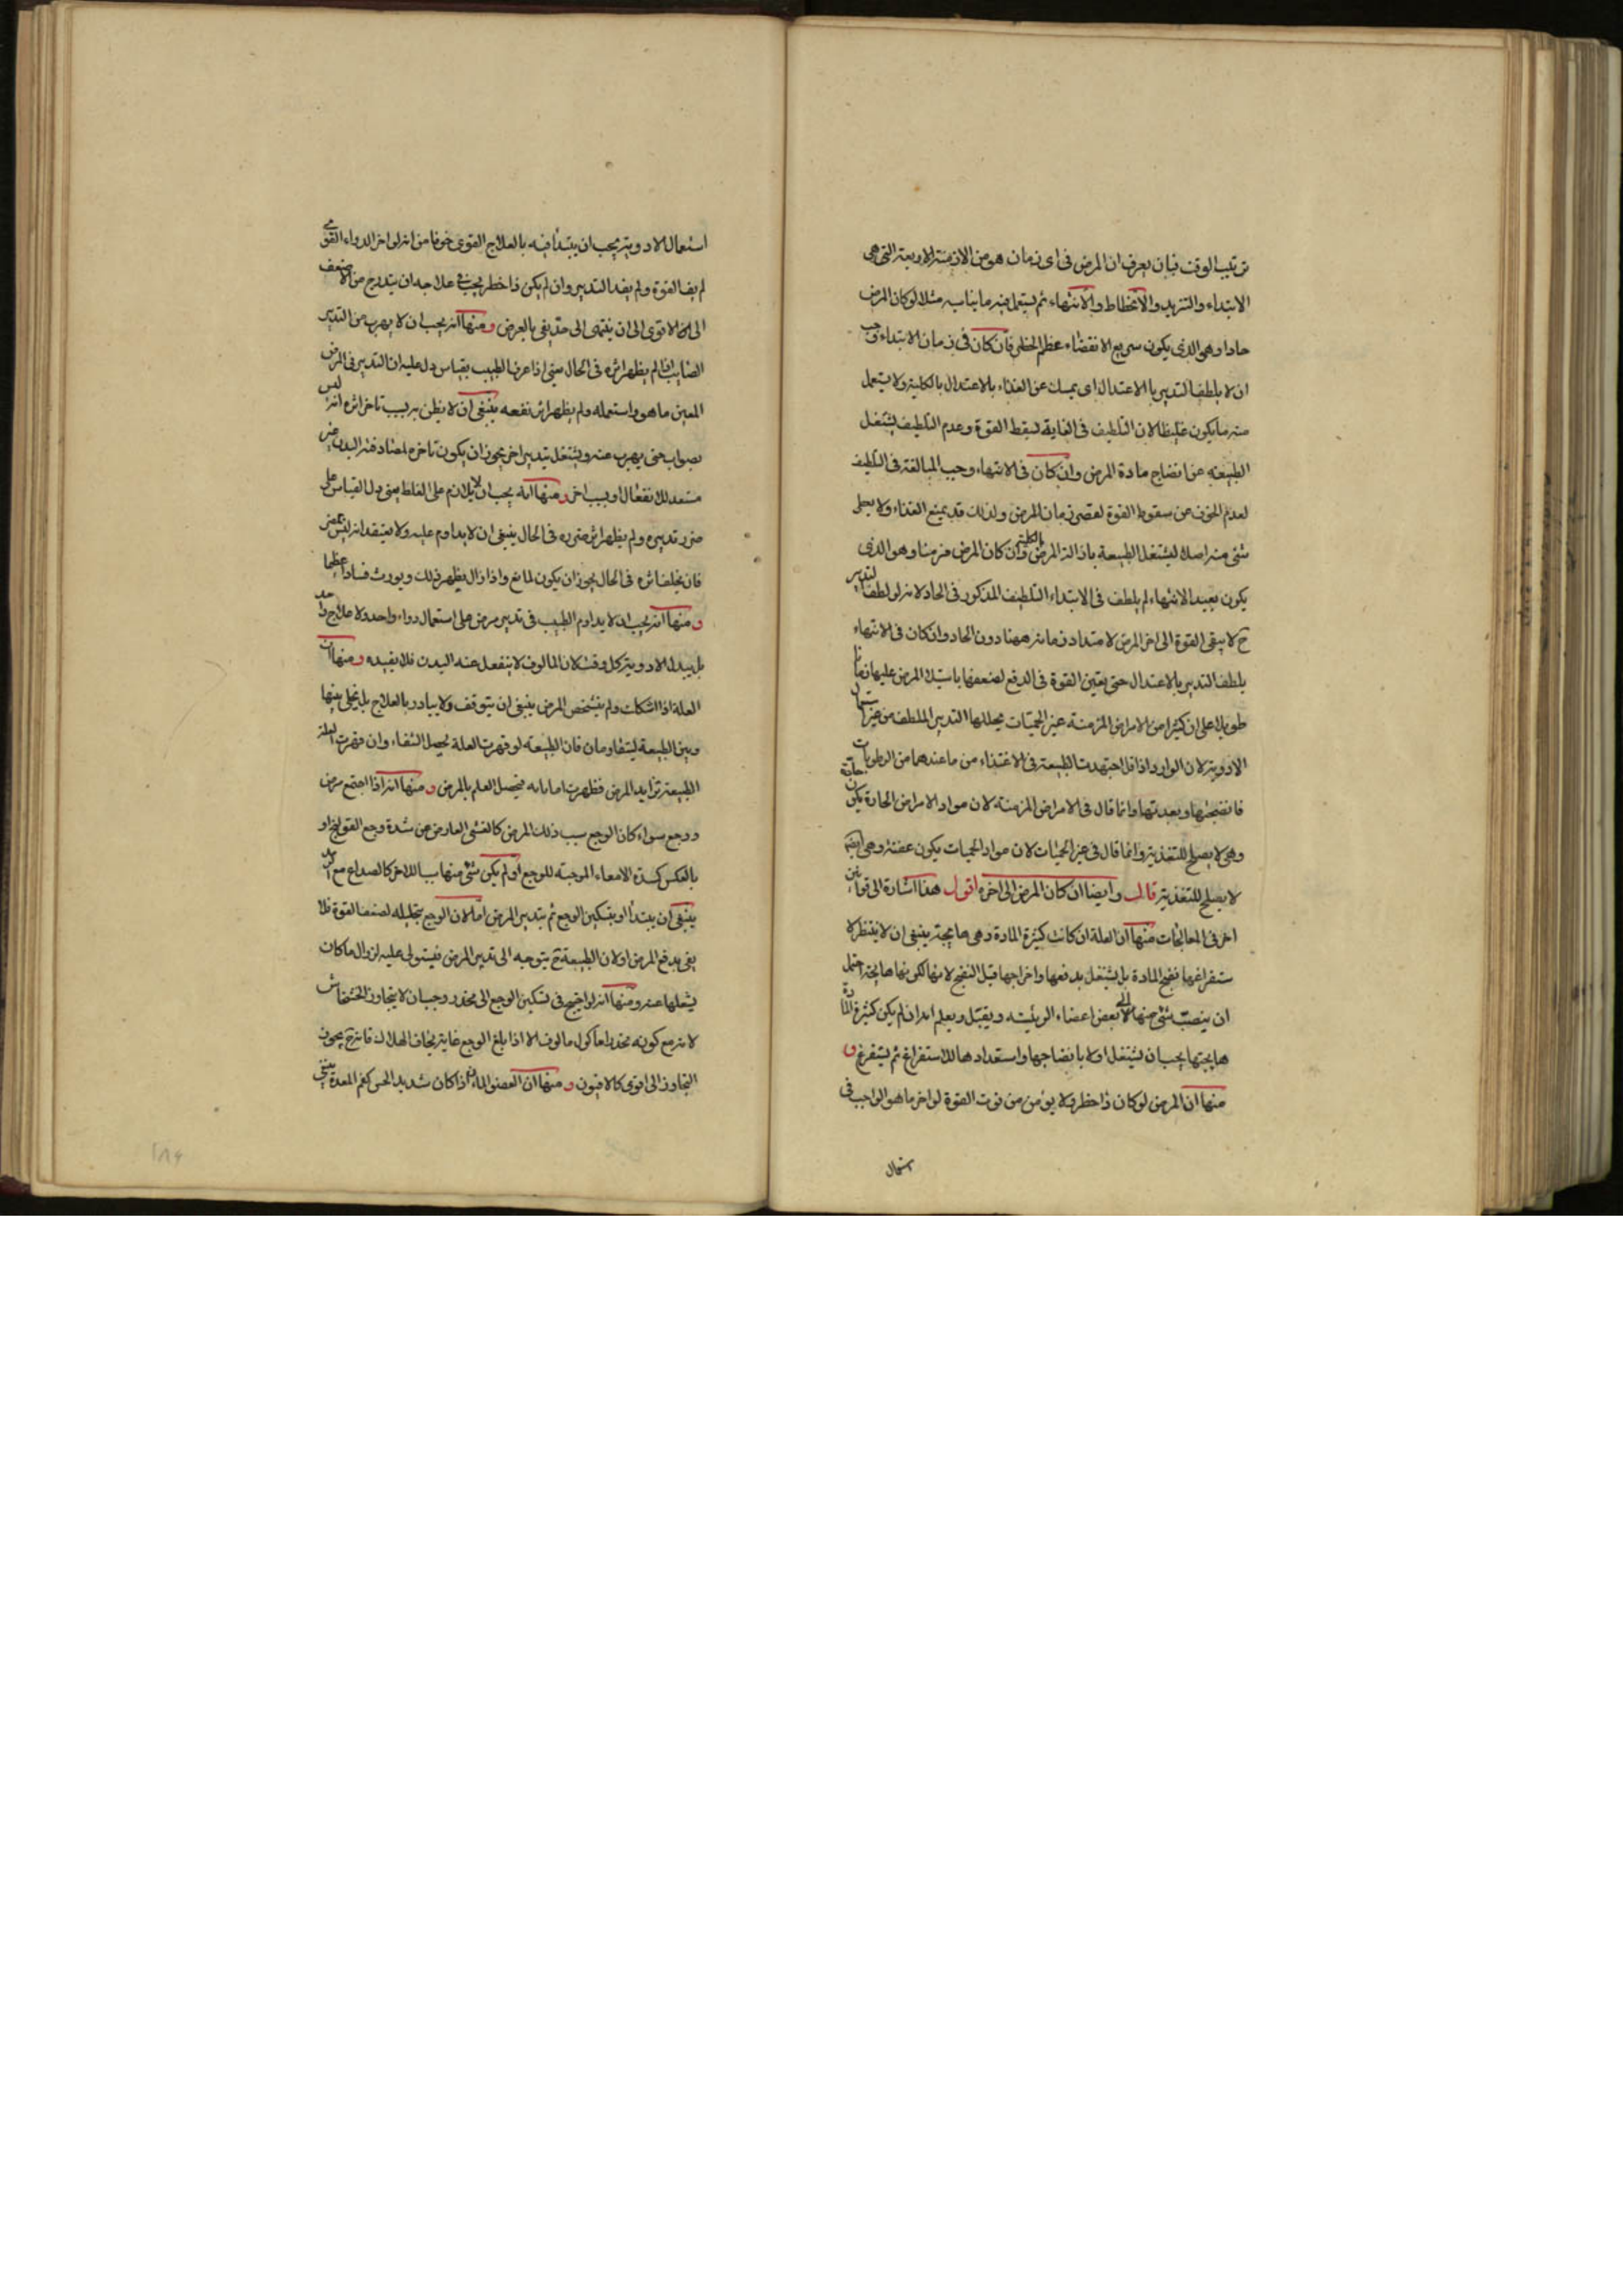 ترتيب الوقت فبان يعرف ان المرض فى اى زمان هو من الازمنة الاربعة التى هى
الابتداء والتزيد والانحطاط والانتهاء ثم يستعمل فيه ما يناسبه مثلا لو كان المرض
حادا وهو الذى يكون سريع الانقضاء عظم الخطر فان كان فى زمان الابتداء وجب
ان لا يلطف التدبير بالاعتدال اى يمسك عن الغذاء بالاعتدال بالكلية ولا يستعمل
منه ما يكون غليظا لان التلطيف فى الغاية يسقط القوة وعدم التلطيف يشغل
الطبيعة عن انضاج مادة المرض وان كان فى الانتهاء وجب المبالغة فى التلطيف
لعدم الخوف عن سقوط القوة لقصر زمان المرض ولذلك قد يمنع الغذاء ولا يعطى
شئ منه اصلا ليشتغل الطبيعة بازالة المرض بالكلية وان كان المرض مزمنا وهو الذى
يكون بعيد الانتهاء لم يلطف فى الابتداء التلطيف المذكور فى الحاد لانه لو لطف التدبير
ح لا يبقى القوة الى اخر المرض لامتداد زمانه ههنا دون الحاد وان كان فى الانتهاء
يلطف التدبير بالاعتدال حتى يعين القوة فى الدفع لضعفها باستيلاء المرض عليها زمانا
طويلا على ان كثيرا من الامراض المزمنة غير الحميات يحللها التدبير الملطف من غير استعمال
الادوية لان الوارد اذا قل اجتهدت الطبيعة فى الاغتذاء من ما عندها من الرطوبات
فانضجتها وبعدتها وانما قال فى الامراض المزمنة لان مواد الامراض الحادة يكون حادة
وهى لا يصلح للتغذية وانما قال فى غير الحميات لان مواد الحميات يكون عفنة وهى ايضا
لا يصلح للتغذية قال وايضا ان كان المرض الى اخره اقول هذا اشارة الى قوانين
اخر فى المعالجات منها ان العلة ان كانت كثيرة المادة وهى هايجة ينبغى ان لا ينتظر لا
ستفراغها نضج المادة بل يشتغل بدفعها واخراجها قبل النضج لانها لكونها هايجة احتمل
ان ينصب شئ منها الى بعض اعضاء الرئيسة ويقتل ويعلم انه ان لم يكن كثيرة المادة
هايجتها يجب ان يشتغل اولا بانضاجها واستعدادها للاستفراغ ثم يستفرغ و
منها ان المرض لو كان ذا خطر ولا يؤمن من فوت القوة لو اخر ما هو الواجب فى
استعمال
استعمال الادوية يجب ان يبتدأ فيه بالعلاج القوى خوفا من انه لو اخر الدواء القوى
لم يف القوة ولم يفد التدبير وان لم يكن ذا خطر يجب فى علاجه ان يتدرج من الاضعف
الى الاقوى الى ان ينتهى الى حد يفى بالعرض ومنها انه يجب ان لا يهرب من التدبير
الصايب اذا لم يظهر اثره فى الحال يعنى اذا عرف الطبيب بقياس دل عليه ان التدبير فى المرض
المعين ما هو واستعمله ولم يظهر اثر نفعه ينبغى ان لا يظن به بسبب تاخر اثره انه ليس
بصواب حتى يهرب منه ويشتغل بتدبير اخر يجوز ان يكون تاخره لمصادفته البدن غير
مستعد للانفعال او بسبب اخر ومنها انه يجب ان لا يلازم على الغلط يعنى دل القياس على
ضرر تدبيره ولم يظهر اثر ضرره فى الحال ينبغى ان لا يداوم عليه ولا يعتقد انه ليس بمضر
فان تخلف اثره فى الحال يجوز ان يكون لمانع واذا زال يظهر ذلك ويورث فسادا عظيما
ومنها انه يجب ان لا يداوم الطبيب فى تدبير مرض على استعمال دواء واحد ولا علاج واحد
بل يبدل الادوية كل وقت لان المالوف لا ينفعل عنه البدن فلا يفيده ومنها ان
العلة اذا اشكلت ولم يتشخص المرض ينبغى ان يتوقف ولا يبادر بالعلاج بل يخلى بينها
وبين الطبيعة ليتقاومان فان الطبيعة لو قهرت العلة يحصل الشفاء وان قهرت العلة
الطبيعة تزايد المرض فظهرت اماراته فيحصل العلم بالمرض ومنها انه اذا اجتمع مرض
ووجع سواء كان الوجع سبب ذلك المرض كالغشى العارض من شدة وجع القولنج او
بالعكس كسدة الامعاء الموجبة للوجع او لم يكن شئ منها سببا للاخر كالصداع مع
ينبغى ان يبتدأ او بتسكين الوجع ثم بتدبير المرض اما لان الوجع بتحليله لضعف القوة فلا
يفى بدفع المرض او لان الطبيعة ح يتوجه الى تدبير المرض فيستولى عليه لزوال ما كان
يشغلها عنه ومنها انه لو احتيج فى تسكين الوجع الى مخدر وجب ان لا يتجاوز الخشخاش
لانه مع كونه مخدرا ماكول مالوف الا اذا بلغ الوجع غايته يخاف الهلاك فانه ح يجوز
التجاوز الى اقوى كالافيون ومنها ان العضو اذا كان شديد الحس كفم المعدة ينبغى